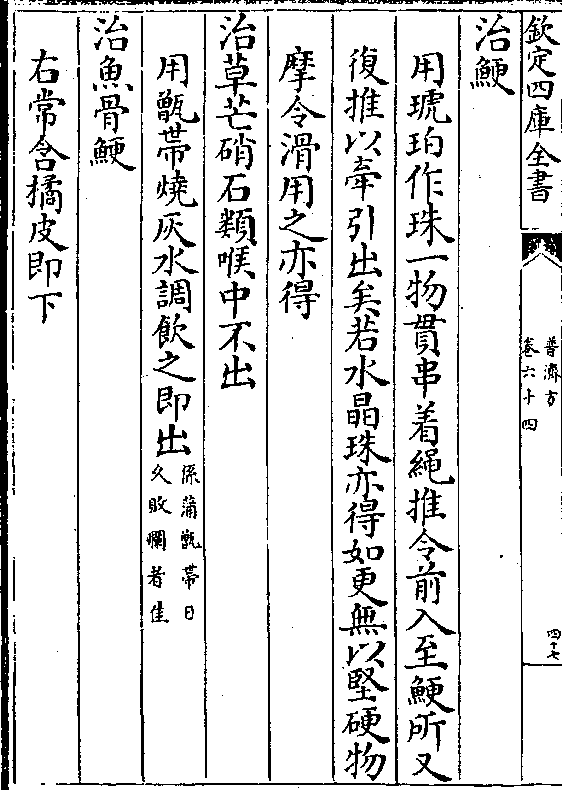 欽定四庫全書
普濟方
卷六十四
四十七
治鯁
用琥珀作珠一物貫串着繩推令前入至鯁所又
復推以牽引出矣若水晶珠亦得如更無以堅硬物
摩令滑用之亦得
治草芒硝石類喉中不出
用甑帶燒灰水調飲之即出係蒲甑帶日
久敗爛者佳
治魚骨鯁
右常含橘皮即下